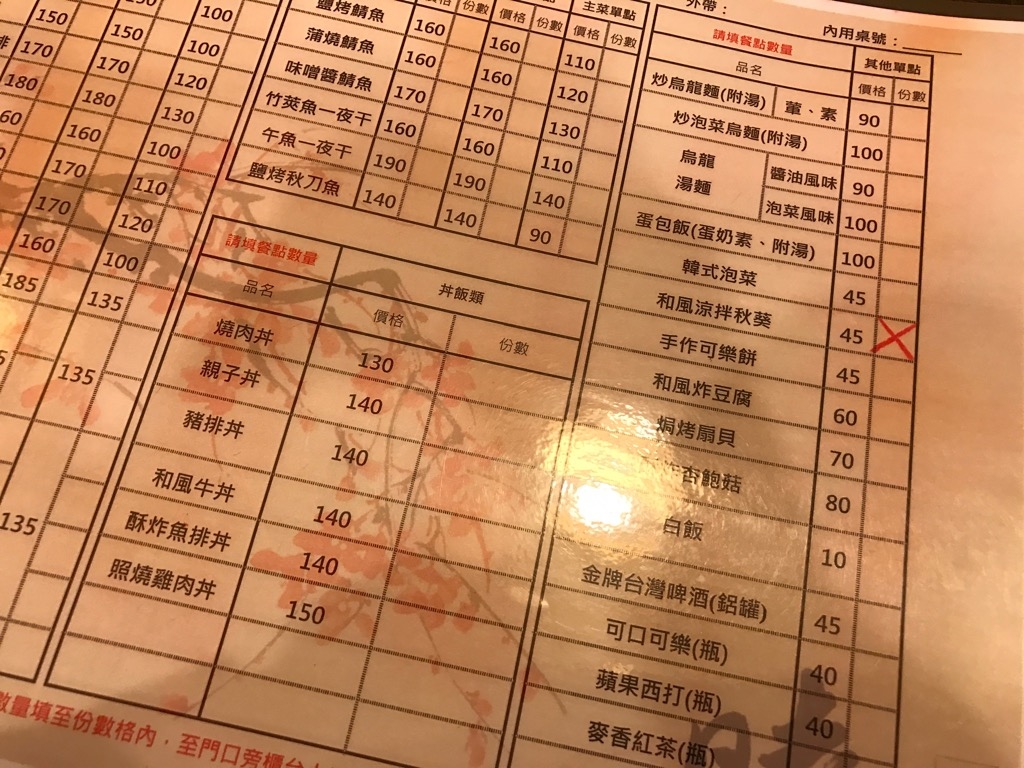 外帶：
內用桌號：
150
100
170
150
100
180
170
120
60
180
130
160
100
170
110
170
120
160
100
185
135
135
135
價格 份數
主菜單點
價格 份數
鹽烤鯖魚 160 160 110
蒲燒鯖魚 160 160 120
味噌醬鯖魚 170 170 130
竹莢魚一夜干 160 160 110
午魚一夜干 190 190 140
鹽烤秋刀魚 140 140 90
請填餐點數量
丼飯類
品名 價格 份數
燒肉丼 130
親子丼 140
豬排丼 140
和風牛丼 140
酥炸魚排丼 140
照燒雞肉丼 150
請填餐點數量
其他單點
品名 價格 份數
炒烏龍麵(附湯) 葷、素 90
炒泡菜烏麵(附湯) 100
烏龍湯麵 醬油風味 90
泡菜風味 100
蛋包飯(蛋奶素、附湯) 100
韓式泡菜 45
和風涼拌秋葵 45
手作可樂餅 45
和風炸豆腐 60
焗烤扇貝 70
杏鮑菇 80
白飯 10
金牌台灣啤酒(鋁罐) 45
可口可樂(瓶) 40
蘋果西打(瓶) 40
麥香紅茶(瓶)
數量填至份數格內，至門口旁櫃台